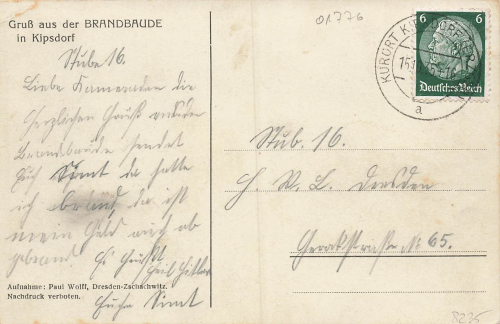 Gruß aus der BRANDBAUDE
in Kipsdorf
01776
Stube 16.
Liebe Kameraden die
herzlichen Grüße aus der
Brandbaude sendet
Euch Simt da hatte
ich da ist
mein Geld auch ab
gebrand. Es Grüßt
Heil Hitler
Euch Simt
Aufnahme: Paul Wolff, Dresden-Zschachwitz.
Nachdruck verboten.
KURORT KIPSDORF
a
6 6
Deutsches Reich
Stub. 16.
H. W. L. Dresden
No 65.
8235